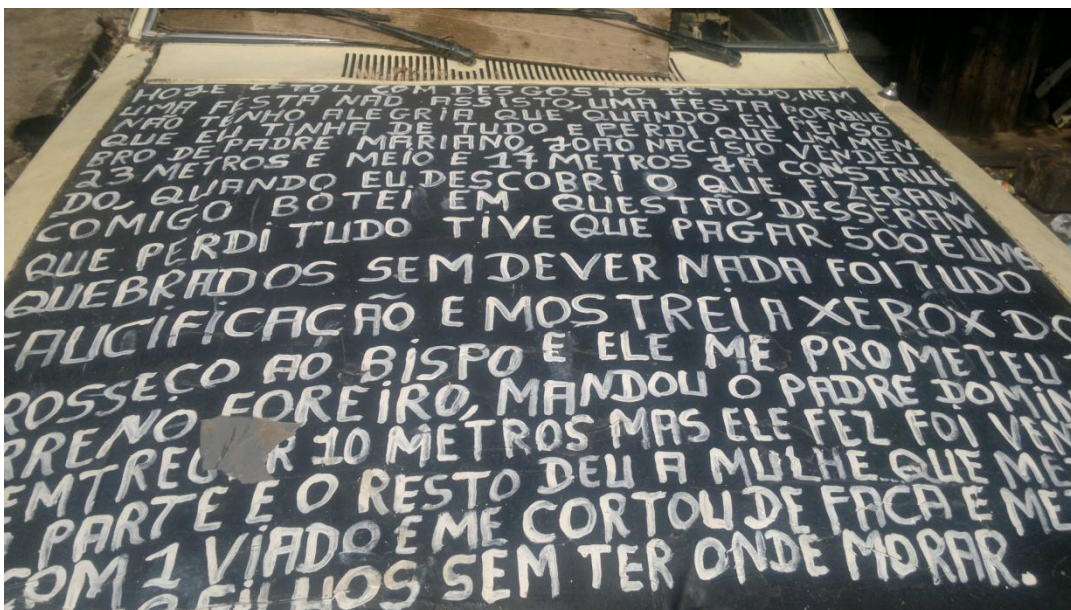 HOJE ESTOU COM DESGOSTO DE TUDO, NEM
UMA FESTA NAO ASSISTO, UMA FESTA PORQUE
NÃO TENHO ALEGRIA QUE QUANDO EU PENSO
QUE EU TINHA DE TUDO E PERDI QUE UM MEN-
BRO DE PADRE MARIANO, JOÃO NACISIO VENDEU
23 METROS E MEIO E 17 METROS JÁ CONSTRUI-
DO, QUANDO EU DESCOBRI O QUE FIZERAM
COMIGO BOTEI EM QUESTÃO, DESSERAM
QUE PERDI TUDO TIVE QUE PAGAR 500 E UMS
QUEBRADOS SEM DEVER NADA FOI TUDO
FAUCIFICAÇÃO E MOSTREI A XEROX DO
ROSSEÇO AO BISPO E ELE ME PROMETEU
RRENO FOREIRO, MANDOU O PADRE DOMIN
EMTREG R 10 METROS MAS ELE FEZ FOI VEN
PARTE E O RESTO DEU A MULHE QUE ME
COM 1 VIADO E ME CORTOU DE FACA E ME
FILHOS SEM TER ONDE MORAR.